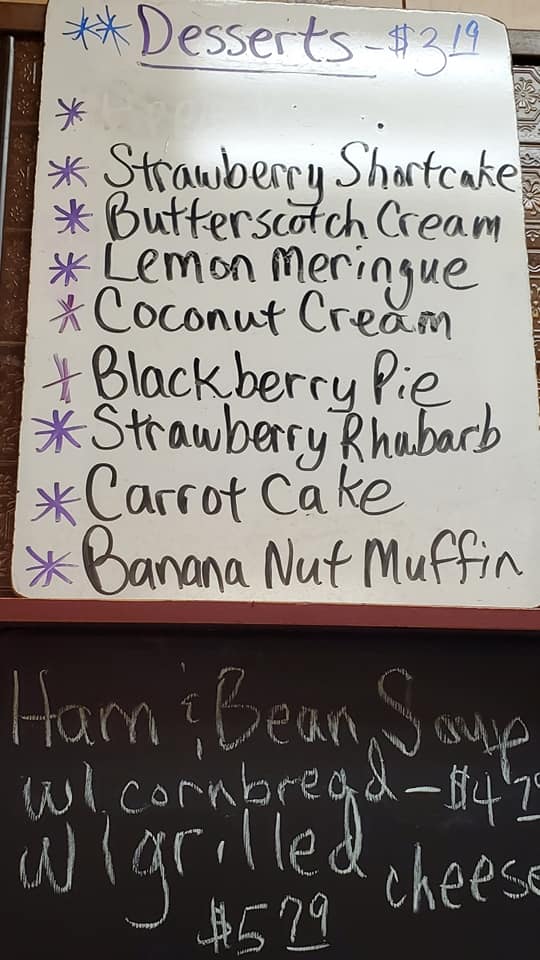 ** Desserts - $3.19
*
* Strawberry Shortcake
* Butterscotch Cream
* Lemon Meringue
* Coconut Cream
* Blackberry Pie
* Strawberry Rhubarb
* Carrot Cake
* Banana Nut Muffin
Ham & Bean Soup
w/ cornbread - $4
w/ grilled cheese
$5.79